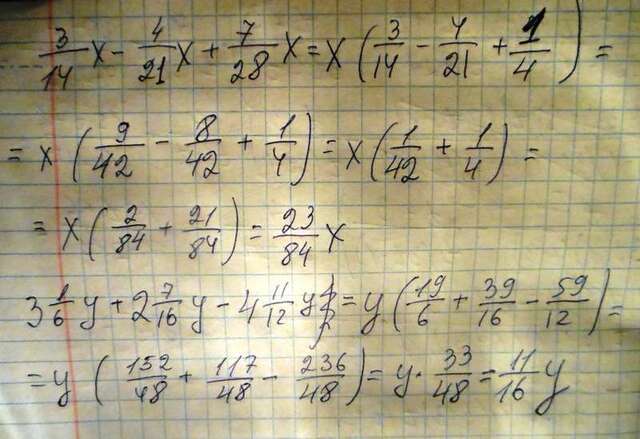 3/14 x - 4/21 x + 7/28 x = x (3/14 - 4/21 + 1/4) =
= x (9/42 - 8/42 + 1/4) = x (1/42 + 1/4) =
= x (2/84 + 21/84) = 23/84 x
3 1/6 y + 2 7/16 y - 4 11/12 y = y (19/6 + 39/16 - 59/12) =
= y (152/48 + 117/48 - 236/48) = y · 33/48 = 11/16 y